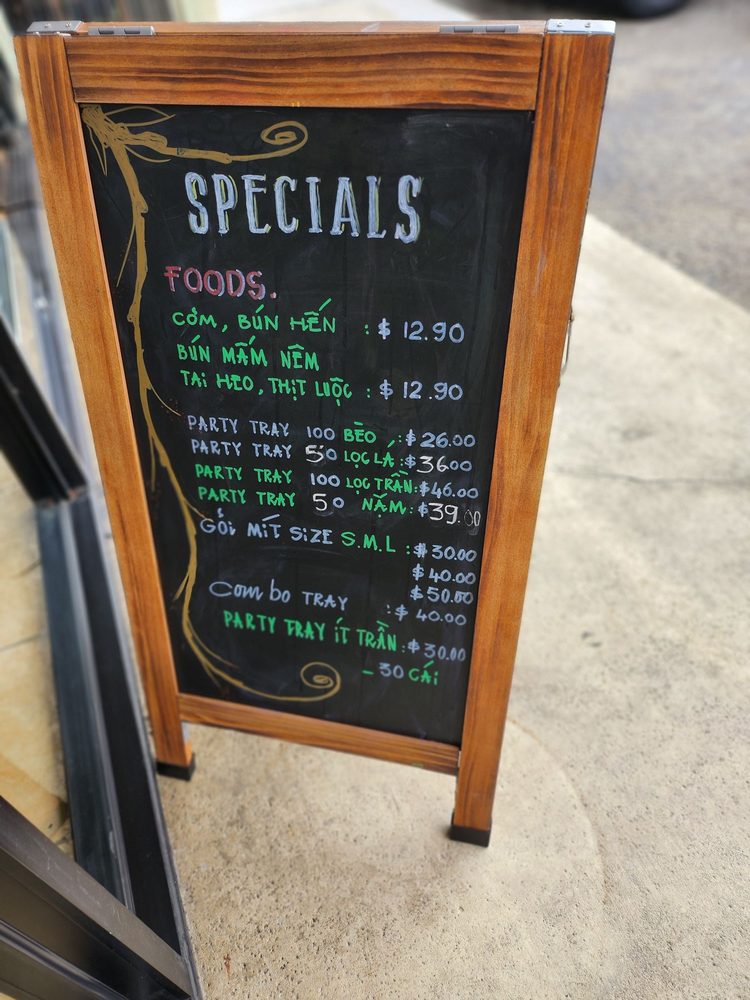 SPECIALS
FOODS.
CƠM, BÚN HẾN : $ 12.90
BÚN MẮM NÊM
TAI HEO, THỊT LUỘC : $ 12.90
PARTY TRAY 100 BÈO : $26.00
PARTY TRAY 50 LỌC LÁ : $3600
PARTY TRAY 100 LỌC TRẦN : $46.00
PARTY TRAY 50 NẬM : $39.00
GỎI MÍT SIZE S.M.L : $30.00
$40.00
$50.00
Combo TRAY : $ 40.00
PARTY TRAY ÍT TRẦN : $30.00
- 30 CÁI